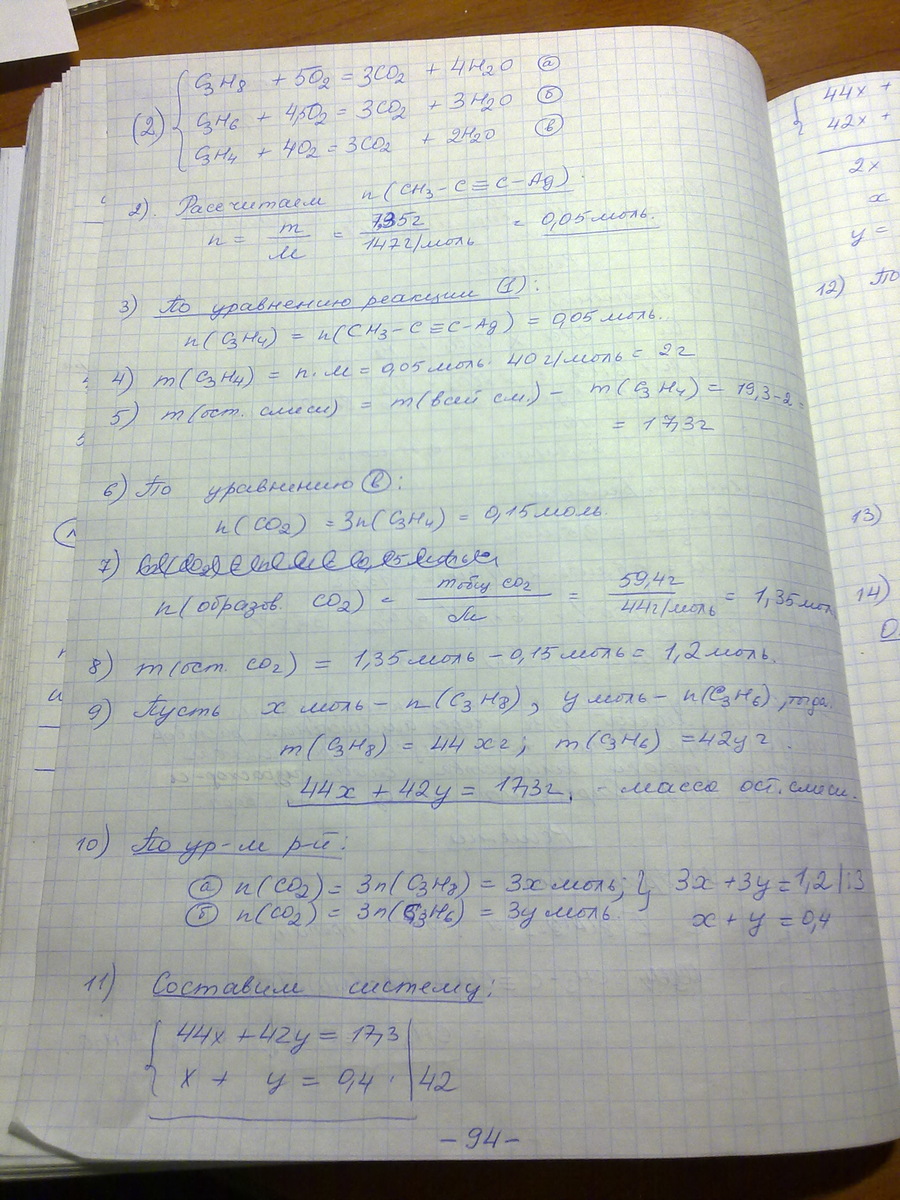 (2) { C₃H₈ + 5O₂ = 3CO₂ + 4H₂O (а)
C₃H₆ + 4,5O₂ = 3CO₂ + 3H₂O (б)
C₃H₄ + 4O₂ = 3CO₂ + 2H₂O (в)
2). Рассчитаем n(CH₃-C≡C-Ag).
n = m/M = 7,35г/147г/моль = 0,05моль.
3) По уравнению реакции (1):
n(C₃H₄) = n(CH₃-C≡C-Ag) = 0,05моль.
4) m(C₃H₄) = n·M = 0,05моль· 40г/моль = 2г
5) m(ост. смеси) = m(всей см.) - m(C₃H₄) = 19,3-2 =
= 17,3г
6) По уравнению (в):
n(CO₂) = 3n(C₃H₄) = 0,15моль.
7)
n(образов. CO₂) = mобщ CO₂/M = 59,4г/44г/моль = 1,35моль
8) m(ост. CO₂) = 1,35моль - 0,15моль = 1,2моль.
9) Пусть x моль - n(C₃H₈), y моль - n(C₃H₆), тогда
m(C₃H₈) = 44xг; m(C₃H₆) = 42yг.
44x + 42y = 17,3г. - масса ост. смеси.
10) По ур-м р-й:
(а) n(CO₂) = 3n(C₃H₈) = 3x моль; } 3x + 3y = 1,2 |:3
(б) n(CO₂) = 3n(C₃H₆) = 3y моль. x + y = 0,4
11) Составим систему:
{ 44x + 42y = 17,3
x + y = 0,4 · | 42
-94-
{ 44x +
42x +
2x
x
y =
12) По
13)
14)